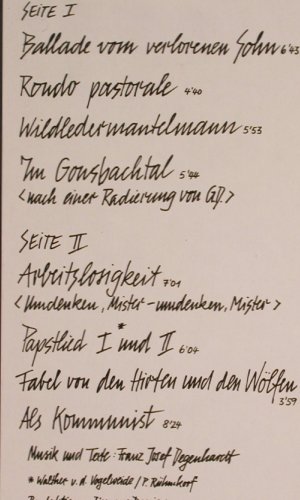 SEITE I
Ballade vom verlorenen Sohn 6'43
Rondo pastorale 4'40
Wildledermantelmann 5'53
Im Gonsbachtal 5'44
<nach einer Radierung von GD.>
SEITE II
Arbeitslosigkeit 7'01
<Umdenken, Mister - umdenken, Mister>
Papstlied I* und II 6'04
Fabel von den Hirten und den Wölfen
3'59
Als Kommunist 8'24
Musik und Texte: Franz Josef Degenhardt
* Walther v. d. Vogelweide / P. Rühmkorf